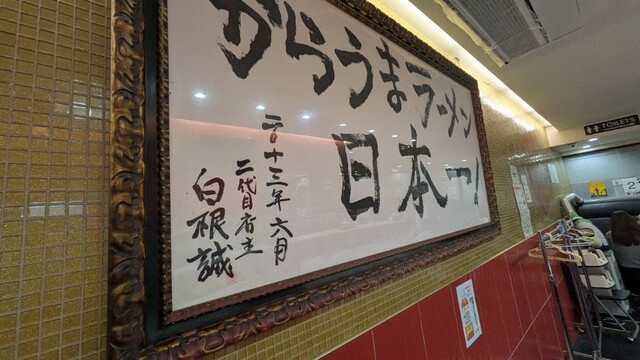 からうまラーメン
日本一！
二〇十三年六月
二代目店主
白根誠
TOILETS